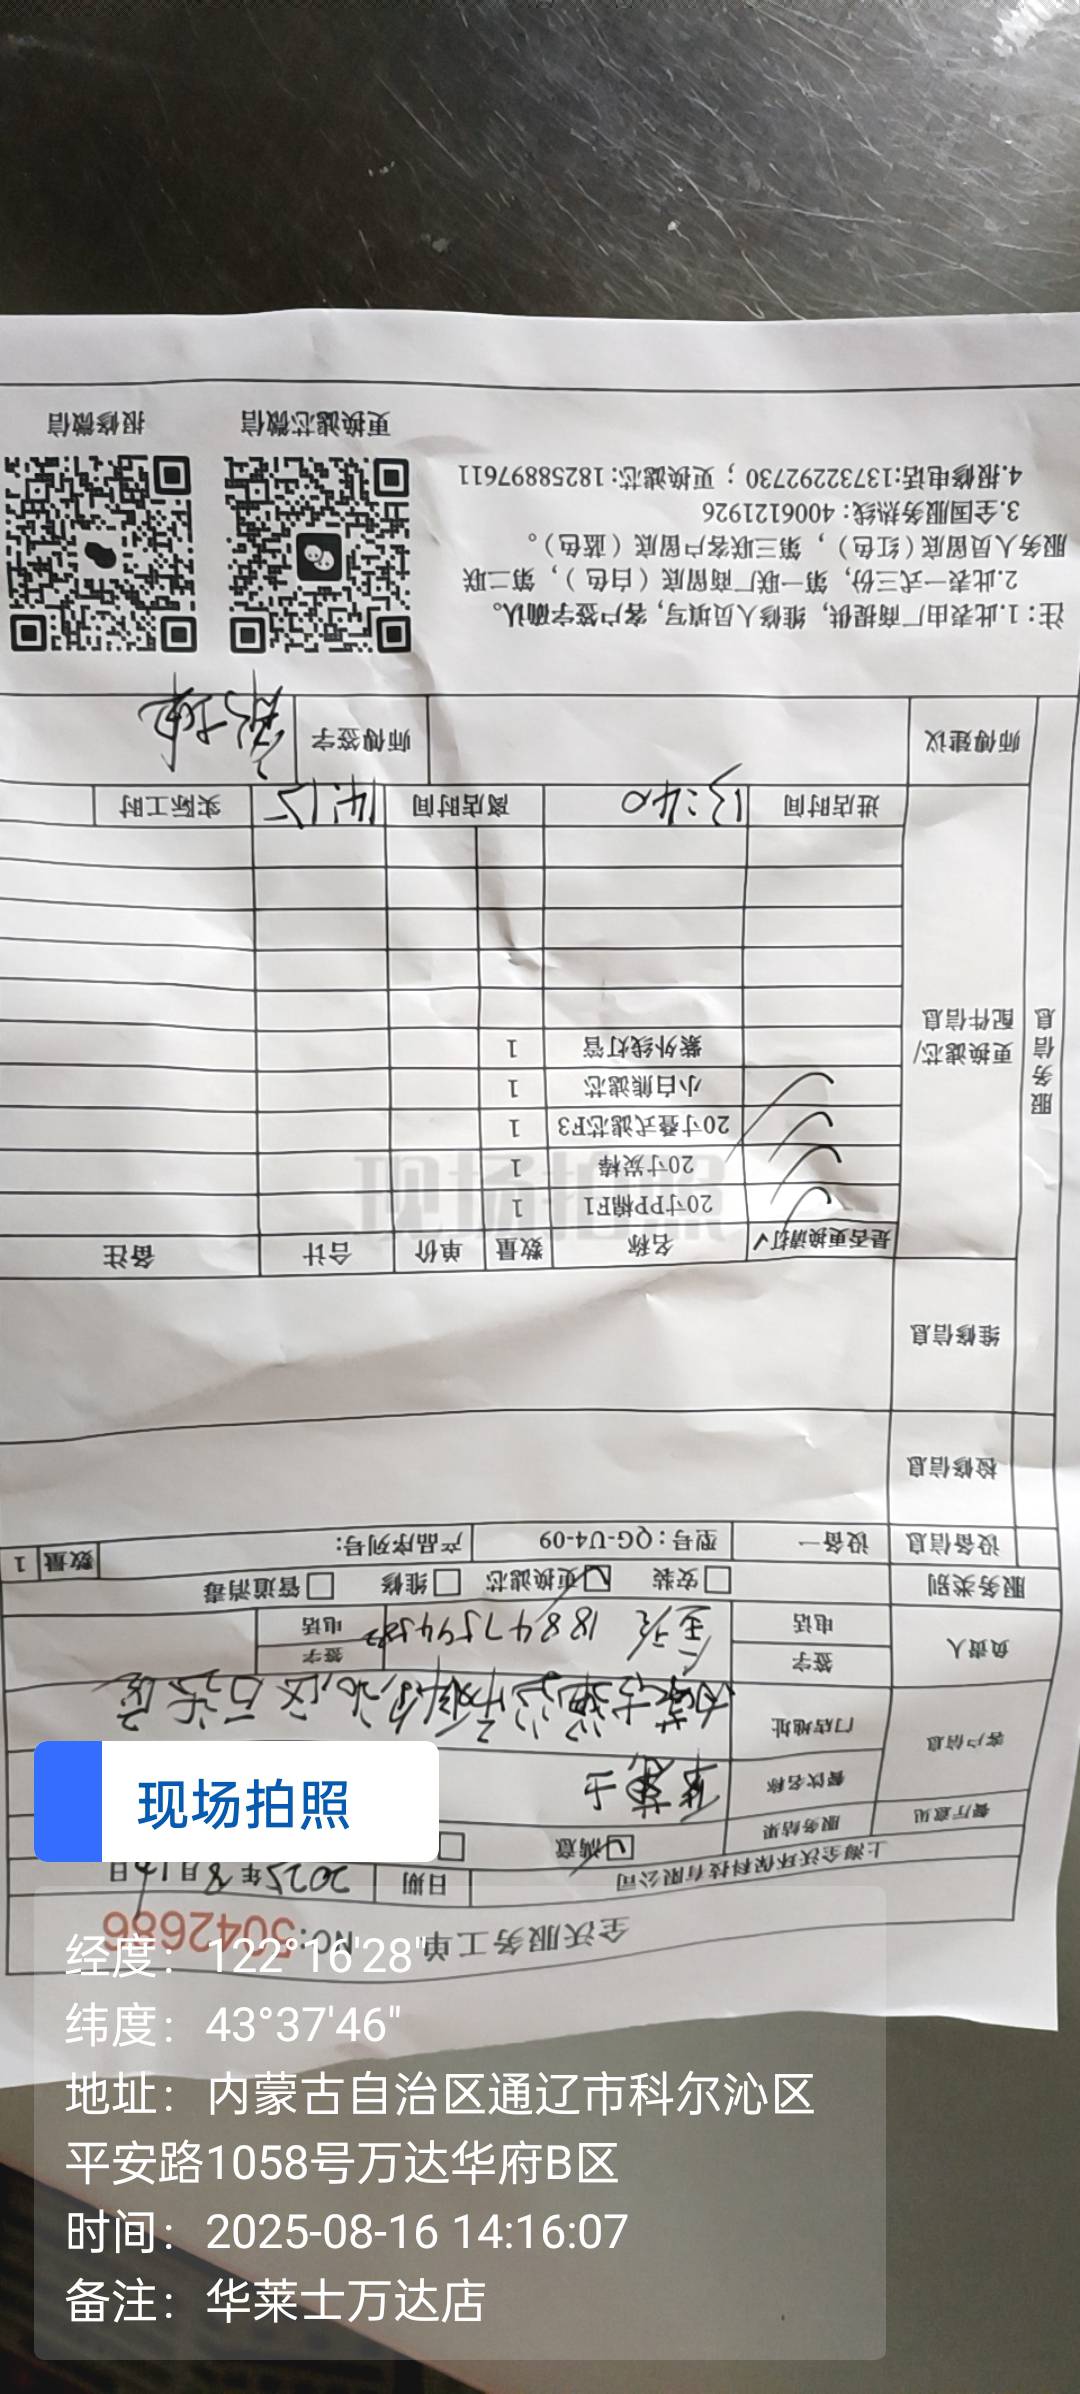 全沃服务工单 NO:5042686
上海全沃环保科技有限公司 日期 2025年8月16日
餐厅意见 服务结果 满意
客户信息 餐饮名称 华莱士
门店地址 内蒙古通辽市科尔沁区万达店
负责人 签字 签字
电话 电话
服务类别 安装 更换滤芯 维修 管道消毒
设备信息 设备一 型号：QG-U4-09 产品序列号: 数量 1
检修信息
维修信息
服务信息
更换滤芯/配件信息
是否更换请打√ 名称 数量 单价 合计 备注
✓ 20寸PP棉F1 1
✓ 20寸炭棒 1
✓ 20寸叠式滤芯F3 1
✓ 小白熊滤芯 1
紫外线灯管 1
进店时间 13:40 离店时间 14:15 实际工时
师傅建议 师傅签字
注：1.此表由厂商提供，维修人员填写,客户签字确认。
2.此表一式三份，第一联厂商留底（白色），第二联
服务人员留底（红色），第三联客户留底（蓝色）。
3.全国服务热线：4006121926
4.报修电话:13732292730；更换滤芯: 18258897611
更换滤芯微信 报修微信
现场拍照
现场拍照
经度：122°16'28"
纬度：43°37'46"
地址：内蒙古自治区通辽市科尔沁区
平安路1058号万达华府B区
时间：2025-08-16 14:16:07
备注：华莱士万达店